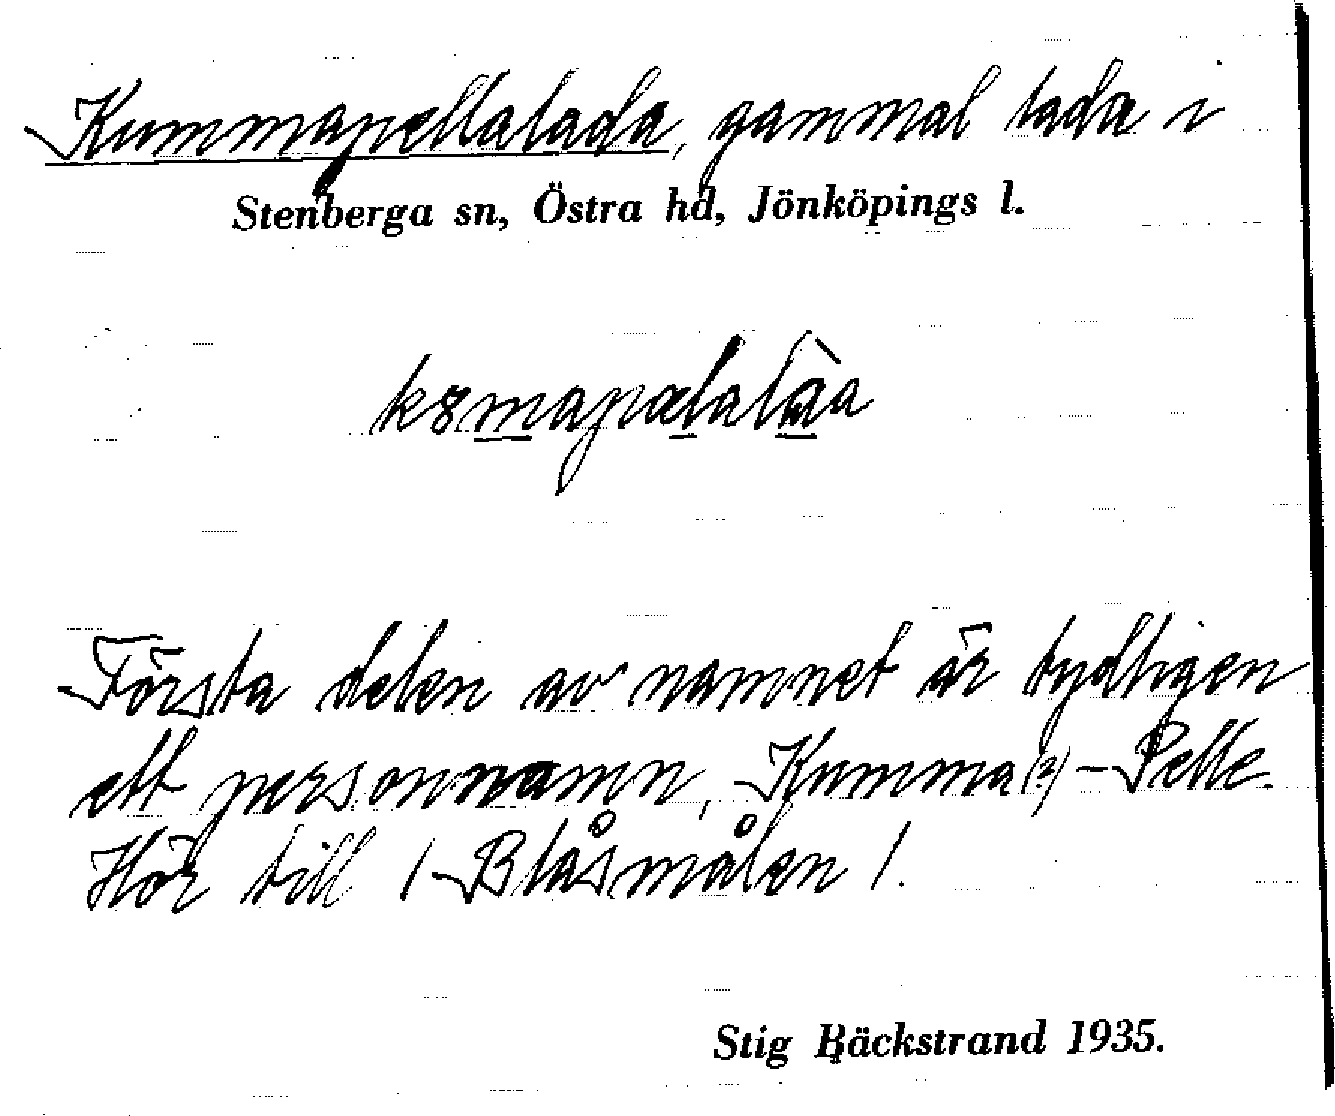 Kummapellalada, gammal lada i
Stenberga sn, Östra hd, Jönköpings l.
k8mapælalàa
Första delen av namnet är tydligen
ett personnamn, Kumma(?)-Pelle.
Hör till / Blåsmålen /.
Stig Bäckstrand 1935.